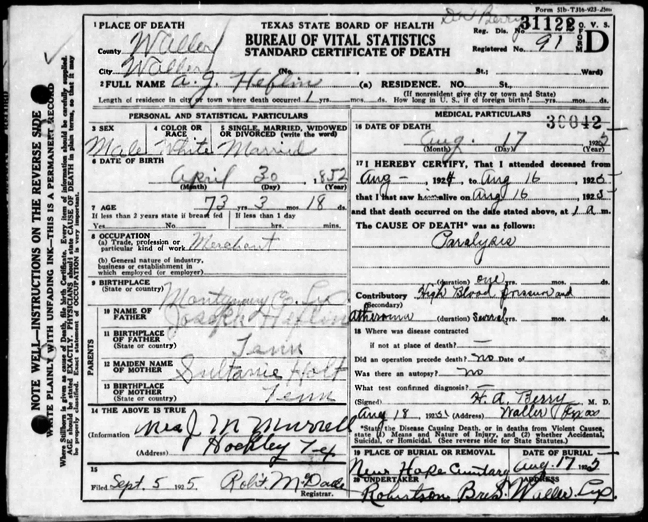 Form 51b-T316-923-25m
1 PLACE OF DEATH
TEXAS STATE BOARD OF HEALTH
BUREAU OF VITAL STATISTICS
STANDARD CERTIFICATE OF DEATH
Dr Berry
31122 O. V. S.
Reg. Dis. No.
Registered No. 91
FORM D
County Waller
City Waller (No. St.; Ward)
2 FULL NAME A. J. Heflin (a) RESIDENCE. NO. St.,
(If nonresident give city or town and State)
Length of residence in city or town where death occurred yrs. mos. ds. How long in U. S., if of foreign birth? yrs. mos. ds.
PERSONAL AND STATISTICAL PARTICULARS
3 SEX
Male
4 COLOR OR RACE
White
5 SINGLE, MARRIED, WIDOWED OR DIVORCED (write the word)
Married
6 DATE OF BIRTH
April 30, 1852
(Month) (Day) (Year)
7 AGE
73 yrs. 3 mos. 18 ds.
If less than 2 years state if breast fed
If less than 1 day
Yes No hrs. mins.
8 OCCUPATION
(a) Trade, profession or particular kind of work Merchant
(b) General nature of industry, business or establishment in which employed (or employer)
9 BIRTHPLACE
(State or country) Montgomery Co. Tex
PARENTS
10 NAME OF FATHER Joseph Heflin
11 BIRTHPLACE OF FATHER
(State or country) Tenn
12 MAIDEN NAME OF MOTHER Sultanie Holt
13 BIRTHPLACE OF MOTHER
(State or country) Tenn
14 THE ABOVE IS TRUE
(Information) Mrs J. M. Murrell
(Address) Hockley Tex
15
Filed Sept. 5 1925 Robt McDade
Registrar.
MEDICAL PARTICULARS
30042
16 DATE OF DEATH
Aug. 17 1925
(Month) (Day) (Year)
17 I HEREBY CERTIFY, That I attended deceased from
Aug – , 1924, to Aug 16, 1925
that I last saw him alive on Aug 16, 1925
and that death occurred on the date stated above, at 1 a m.
The CAUSE OF DEATH* was as follows:
Paralysis
(duration) one yrs. mos. ds.
Contributory High Blood Pressure and
(Secondary)
atheroma (duration) Several yrs. mos. ds.
18 Where was disease contracted
if not at place of death? –
Did an operation precede death? no Date of
Was there an autopsy? no
What test confirmed diagnosis? –
(Signed) H. A. Berry M. D.
Aug 18, 1925 (Address) Waller Texas
*State the Disease Causing Death, or in deaths from Violent Causes, state (1) Means and Nature of Injury, and (2) whether Accidental, Suicidal, or Homicidal. (See Reverse Side for further statement.)
19 PLACE OF BURIAL OR REMOVAL DATE OF BURIAL
New Hope Cemetery Aug. 17 1925
20 UNDERTAKER ADDRESS
Robertson Bros. Waller Tex.
NOTE WELL—INSTRUCTIONS ON THE REVERSE SIDE
WRITE PLAINLY WITH UNFADING INK—THIS IS A PERMANENT RECORD